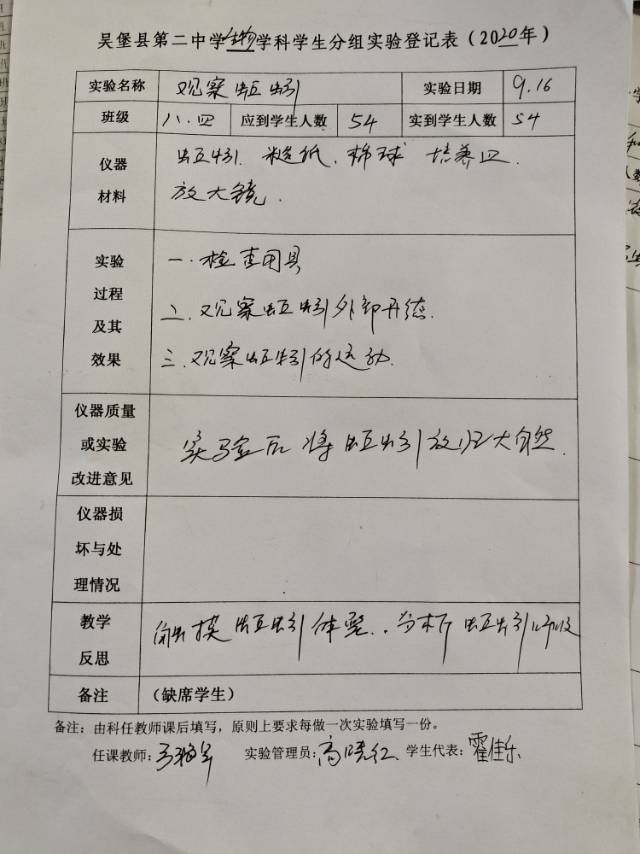 吴堡县第二中学生物学科学生分组实验登记表（2020年）
实验名称 观察蚯蚓 实验日期 9.16
班级 八.四 应到学生人数 54 实到学生人数 54
仪器材料 蚯蚓. 糙纸. 棉球 培养皿.
放大镜.
实验过程及其效果 一.检查用具
二.观察蚯蚓外部形态.
三.观察蚯蚓的运动.
仪器质量或实验改进意见 实验后将蚯蚓放归大自然.
仪器损坏与处理情况
教学反思 触摸蚯蚓体壁..分析蚯蚓呼吸
备注 （缺席学生）
备注：由科任教师课后填写，原则上要求每做一次实验填写一份。
任课教师： 实验管理员：高晓红 学生代表：霍佳乐